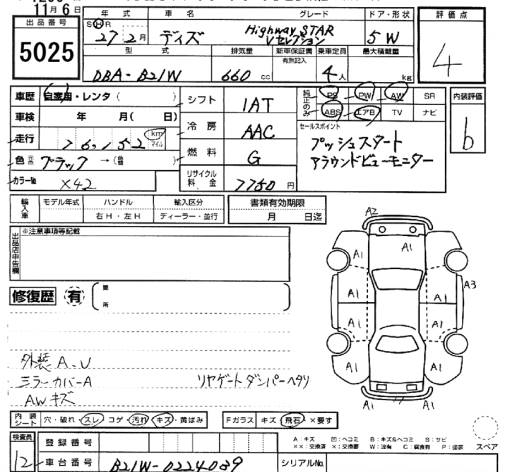 11月6日
出品番号 5025
年式 車名 グレード ドア・形状 評価点
SHR 27年2月 デイズ Highway STAR Vセレクション 5W 4
型式 排気量 新車保証書 有無記入 乗車定員 最大積載量
DBA-B21W 660cc 4人 kg
車歴 自家用・レンタ( ) シフト 1AT 純正のみ PS PW AW SR 内装評価
車検 年 月( 日) 冷房 AAC ABS エアB TV ナビ b
走行 76,152 km マイル 燃料 G セールスポイント
色 ブラック→(色 ) プッシュスタート
カラー№ X42 リサイクル料金 7750円 アラウンドビューモニター
輸入車 モデル年式 ハンドル 輸入区分 書類有効期限
右H・左H ディーラー・並行 月 日迄
出品店申告欄 ※注意事項等記載
修復歴 有 箇所
A2
A1 A1
A1 A1
A1 A1 A3
A1 A1
A1
外装A、U
ミラーカバーA リヤゲートダンパーヘタリ
AWキズ
内装シート 穴・破れ・スレ コゲ・汚れ・キズ・黄ばみ Fガラス キズ・飛石 ×要す
検査員 12 登録番号 A:キズ U:ヘコミ B:キズ&ヘコミ S:サビ
××:交換済 ×:交換要 W:波有 C:腐食有 P:塗装 スペア
車台番号 B21W-0224039 シリアル№